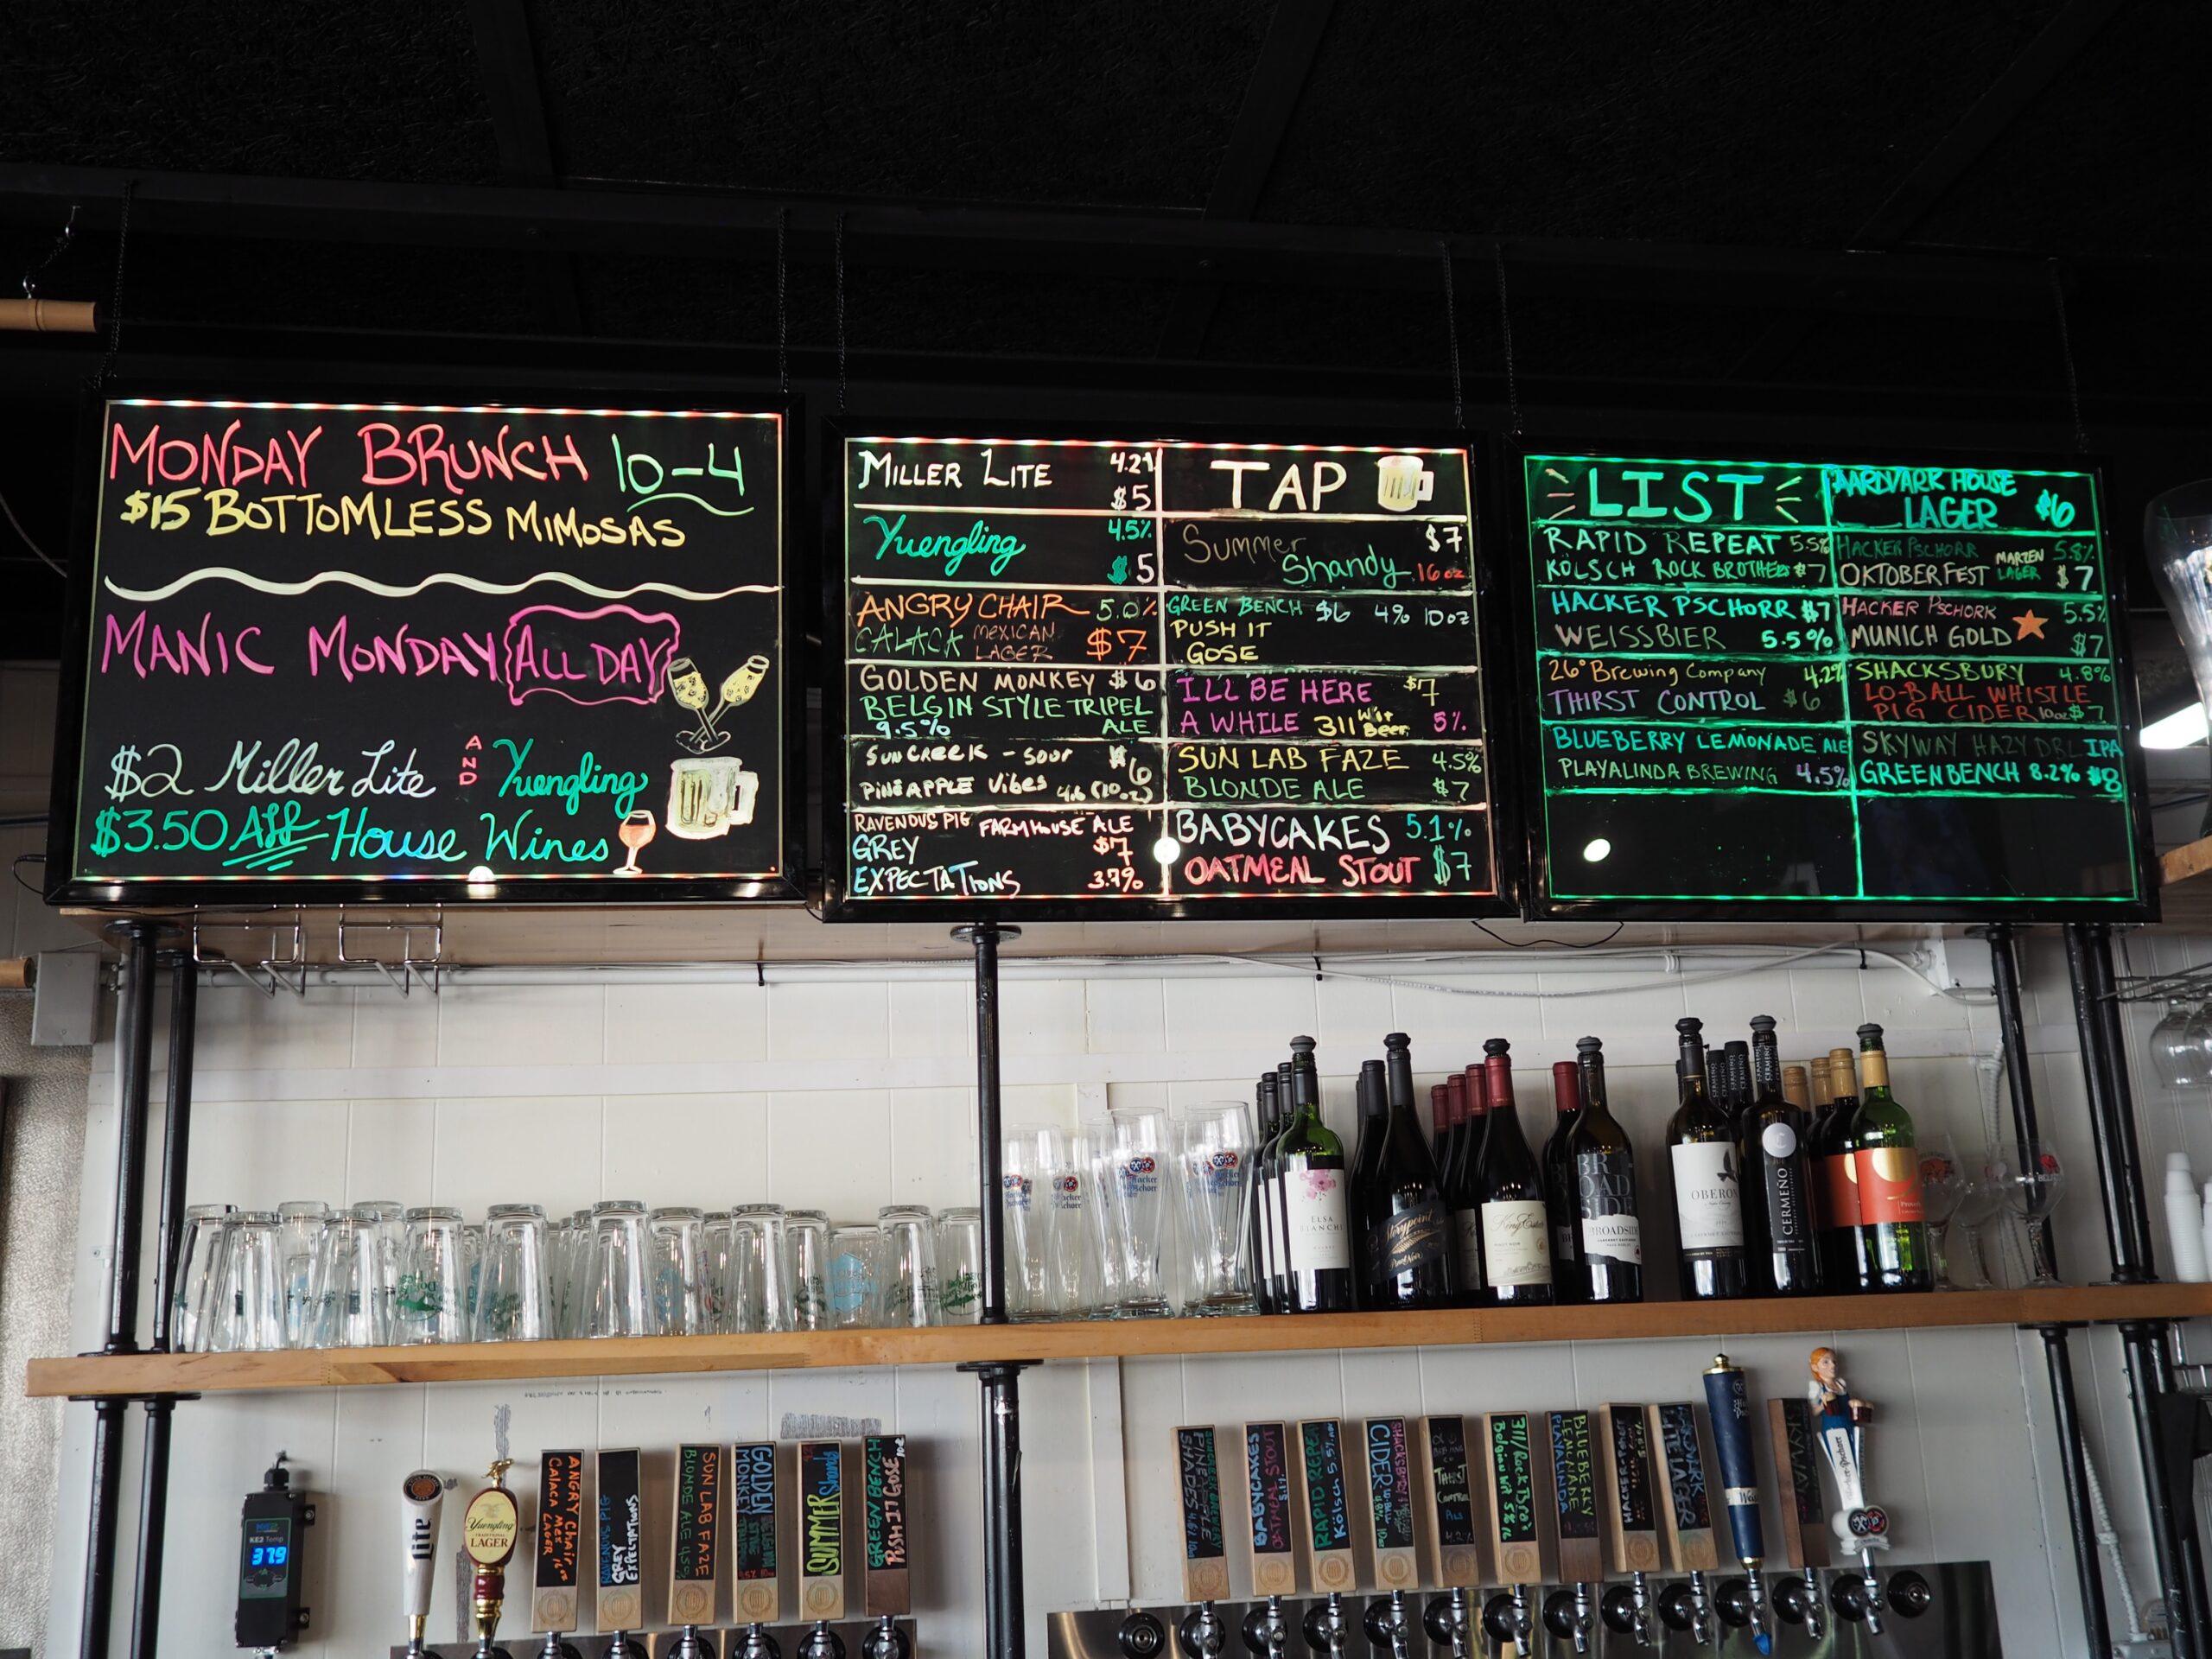 MONDAY BRUNCH 10-4
$15 BOTTOMLESS MIMOSAS
MANIC MONDAY ALL DAY
$2 Miller Lite AND Yuengling
$3.50 All House Wines
MILLER LITE 4.2%
$5
Yuengling 4.5%
$5
ANGRY CHAIR 5.0%
CALACA MEXICAN LAGER $7
GOLDEN MONKEY $6
BELGIN STYLE TRIPEL
9.5% ALE
SUN CREEK - SOUR $6
PINEAPPLE Vibes 4.6 (10oz)
RAVENOUS PIG FARMHOUSE ALE
GREY $7
EXPECTATIONS 3.7%
TAP
Summer $7
Shandy 16oz
GREEN BENCH $6 4% 10oz
PUSH IT
GOSE
I'LL BE HERE $7
A WHILE 311 Wit Beer 5%
SUN LAB FAZE 4.5%
BLONDE ALE $7
BABYCAKES 5.1%
OATMEAL STOUT $7
LIST
RAPID REPEAT 5.5%
KÖLSCH ROCK BROTHERS $7
HACKER PSCHORR $7
WEISSBIER 5.5%
26° Brewing Company 4.2%
THIRST CONTROL $6
BLUEBERRY LEMONADE ALE
PLAYALINDA BREWING 4.5%
AARDVARK HOUSE
LAGER $6
HACKER PSCHORR MARZEN 5.8%
OKTOBERFEST LAGER $7
HACKER PSCHORR 5.5%
MUNICH GOLD $7
SHACKSBURY 4.8%
LO-BALL WHISTLE
PIG CIDER 10oz $7
SKYWAY HAZY DBL IPA
GREEN BENCH 8.2% $8
Hacker Pschorr
ELSA BIANCHI
Storypoint
Pinot Noir
King Estate
PINOT NOIR
BROADSIDE
OBERON
CERMEÑO
KE2 Temp
37.9
Lite
Yuengling
TRADITIONAL
LAGER
ANGRY Chair
CALACA Mex
LAGER
RAVENUS PIG
GREY
EXPECTATIONS
SUN LAB FAZE
BLONDE ALE
GOLDEN
MONKEY
SUMMER Shandy
GREEN BENCH
PUSH IT GOSE
BABYCAKES
OATMEAL STOUT
5.1%
RAPID REPEAT
Kölsch
CIDER
THIRST
CONTROL
BLUEBERRY
LEMONADE
PLAYALINDA
SKYWAY
Hacker-Pschorr